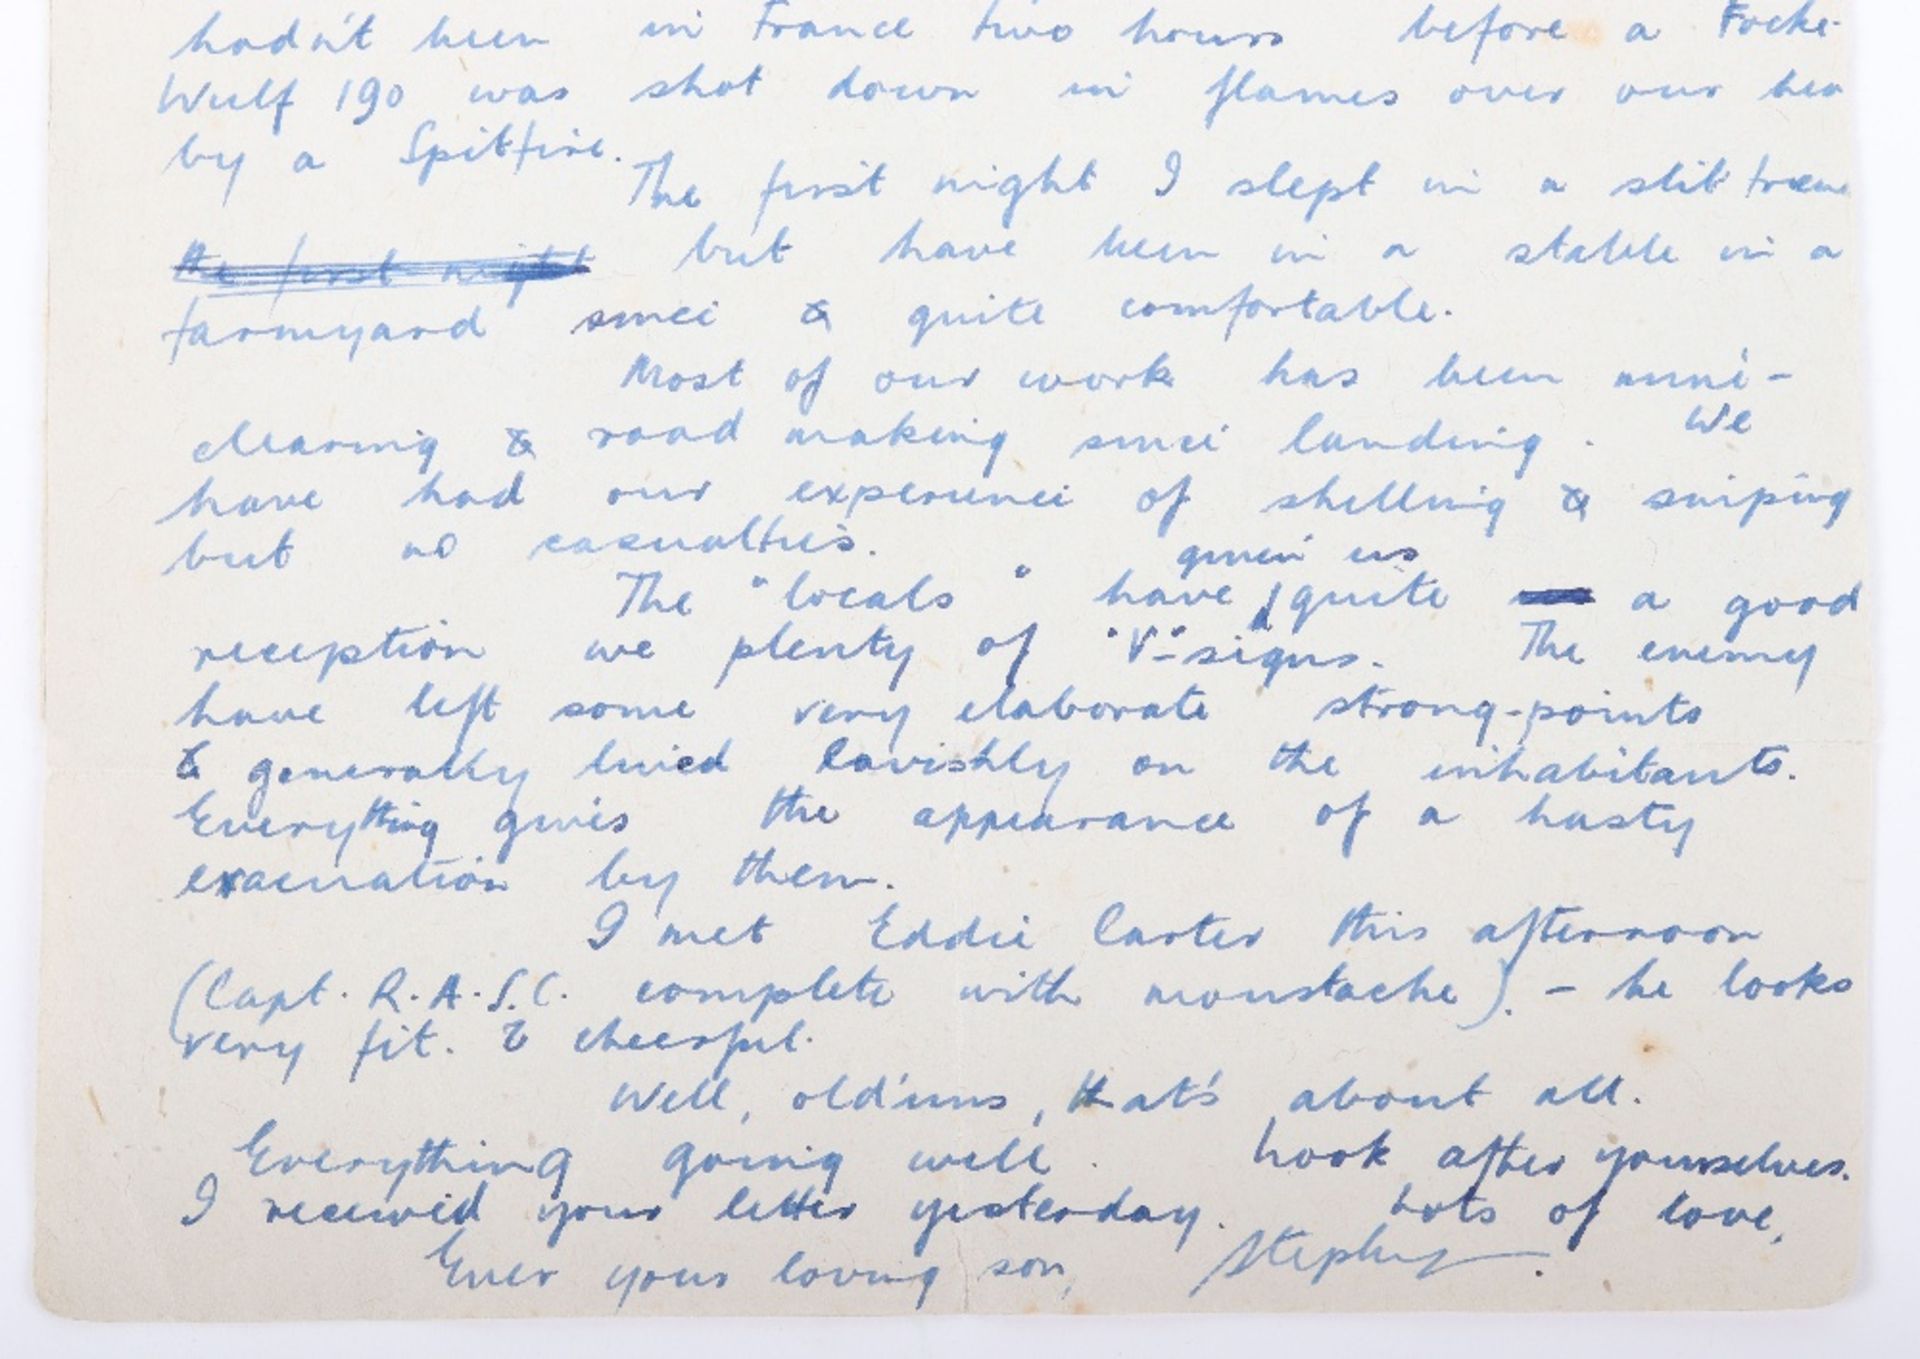 hadn't been in France two hours before a Focke-
Wulf 190 was shot down in flames over our hea
by a Spitfire.
The first night I slept in a slit tren
the first night but have been in a stable in a
farmyard since & quite comfortable.
Most of our work has been mine-
clearing & road making since landing. We
have had our experience of shelling & sniping
but no casualties.
The "locals" have given us quite a good
reception we plenty of "V"-signs. The enemy
have left some very elaborate strong-points
& generally lived lavishly on the inhabitants.
Everything gives the appearance of a hasty
evacuation by them.
I met Eddie Carter this afternoon
(Capt. R.A.S.C. complete with moustache). - he looks
very fit. & cheerful.
Well, old'uns, that's about all.
Everything going well. Look after yourselves.
I received your letter yesterday. Lots of love,
Ever your loving son, Stephen.